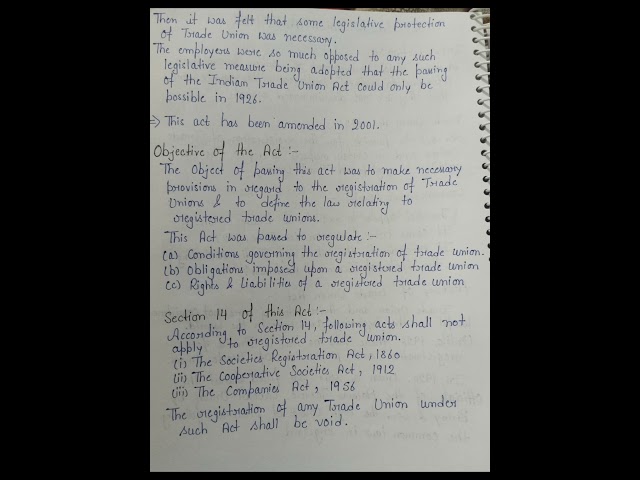 Then it was felt that some legislative protection
of Trade Union was necessary.
The employers were so much opposed to any such
legislative measure being adopted that the passing
of the Indian Trade Union Act could only be
possible in 1926.
⇒ This act has been amended in 2001.
Objective of the Act :-
The Object of passing this act was to make necessary
provisions in regard to the registration of Trade
Unions & to define the law relating to
registered trade unions.
This Act was passed to regulate :-
(a) Conditions governing the registration of trade union.
(b) Obligations imposed upon a registered trade union
(c) Rights & Liabilities of a registered trade union
Section 14 of this Act :-
According to Section 14, following acts shall not
apply to registered trade union.
(i) The Societies Registration Act, 1860
(ii) The Cooperative Societies Act, 1912
(iii) The Companies Act, 1956
The registration of any Trade Union under
such Act shall be void.